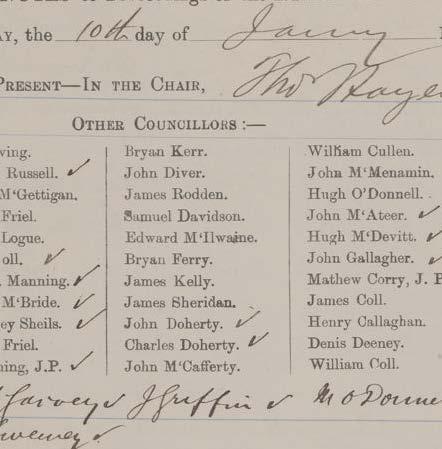 AY, the 10th day of Jany
PRESENT—IN THE CHAIR, Thos Hayes
OTHER COUNCILLORS :—
ving. Bryan Kerr. William Cullen.
Russell. ✓ John Diver. John M'Menamin.
M'Gettigan. James Rodden. Hugh O'Donnell.
Friel. Samuel Davidson. John M'Ateer. ✓
Logue. Edward M'Ilwaine. Hugh M'Devitt. ✓
oll. ✓ Bryan Ferry. John Gallagher. ✓
Manning. ✓ James Kelly. Mathew Corry, J. P.
M'Bride. ✓ James Sheridan. James Coll.
ey Sheils. ✓ John Doherty. ✓ Henry Callaghan.
Friel. Charles Doherty. ✓ Denis Deeney.
ning, J.P. ✓ John M'Cafferty. William Coll.
Garvey ✓ J Griffin ✓ M O Donne
weeney ✓